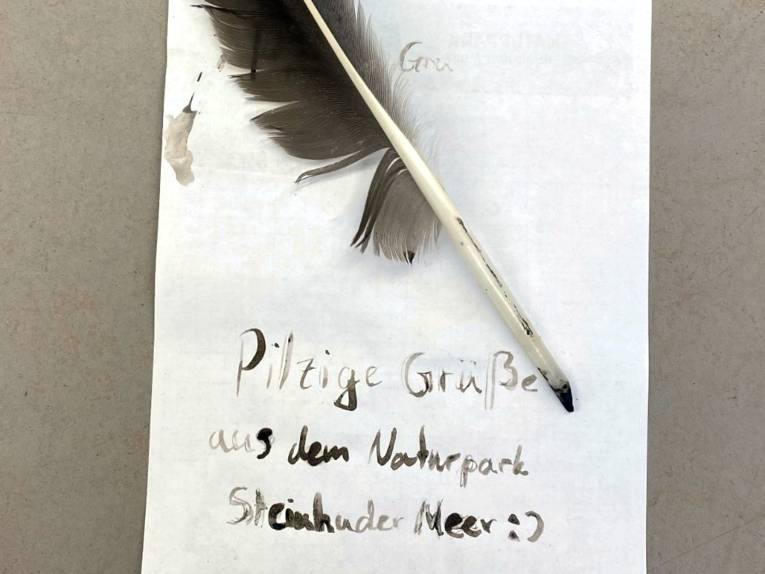 Grü
Pilzige Grüße
aus dem Naturpark
Steinhuder Meer :)